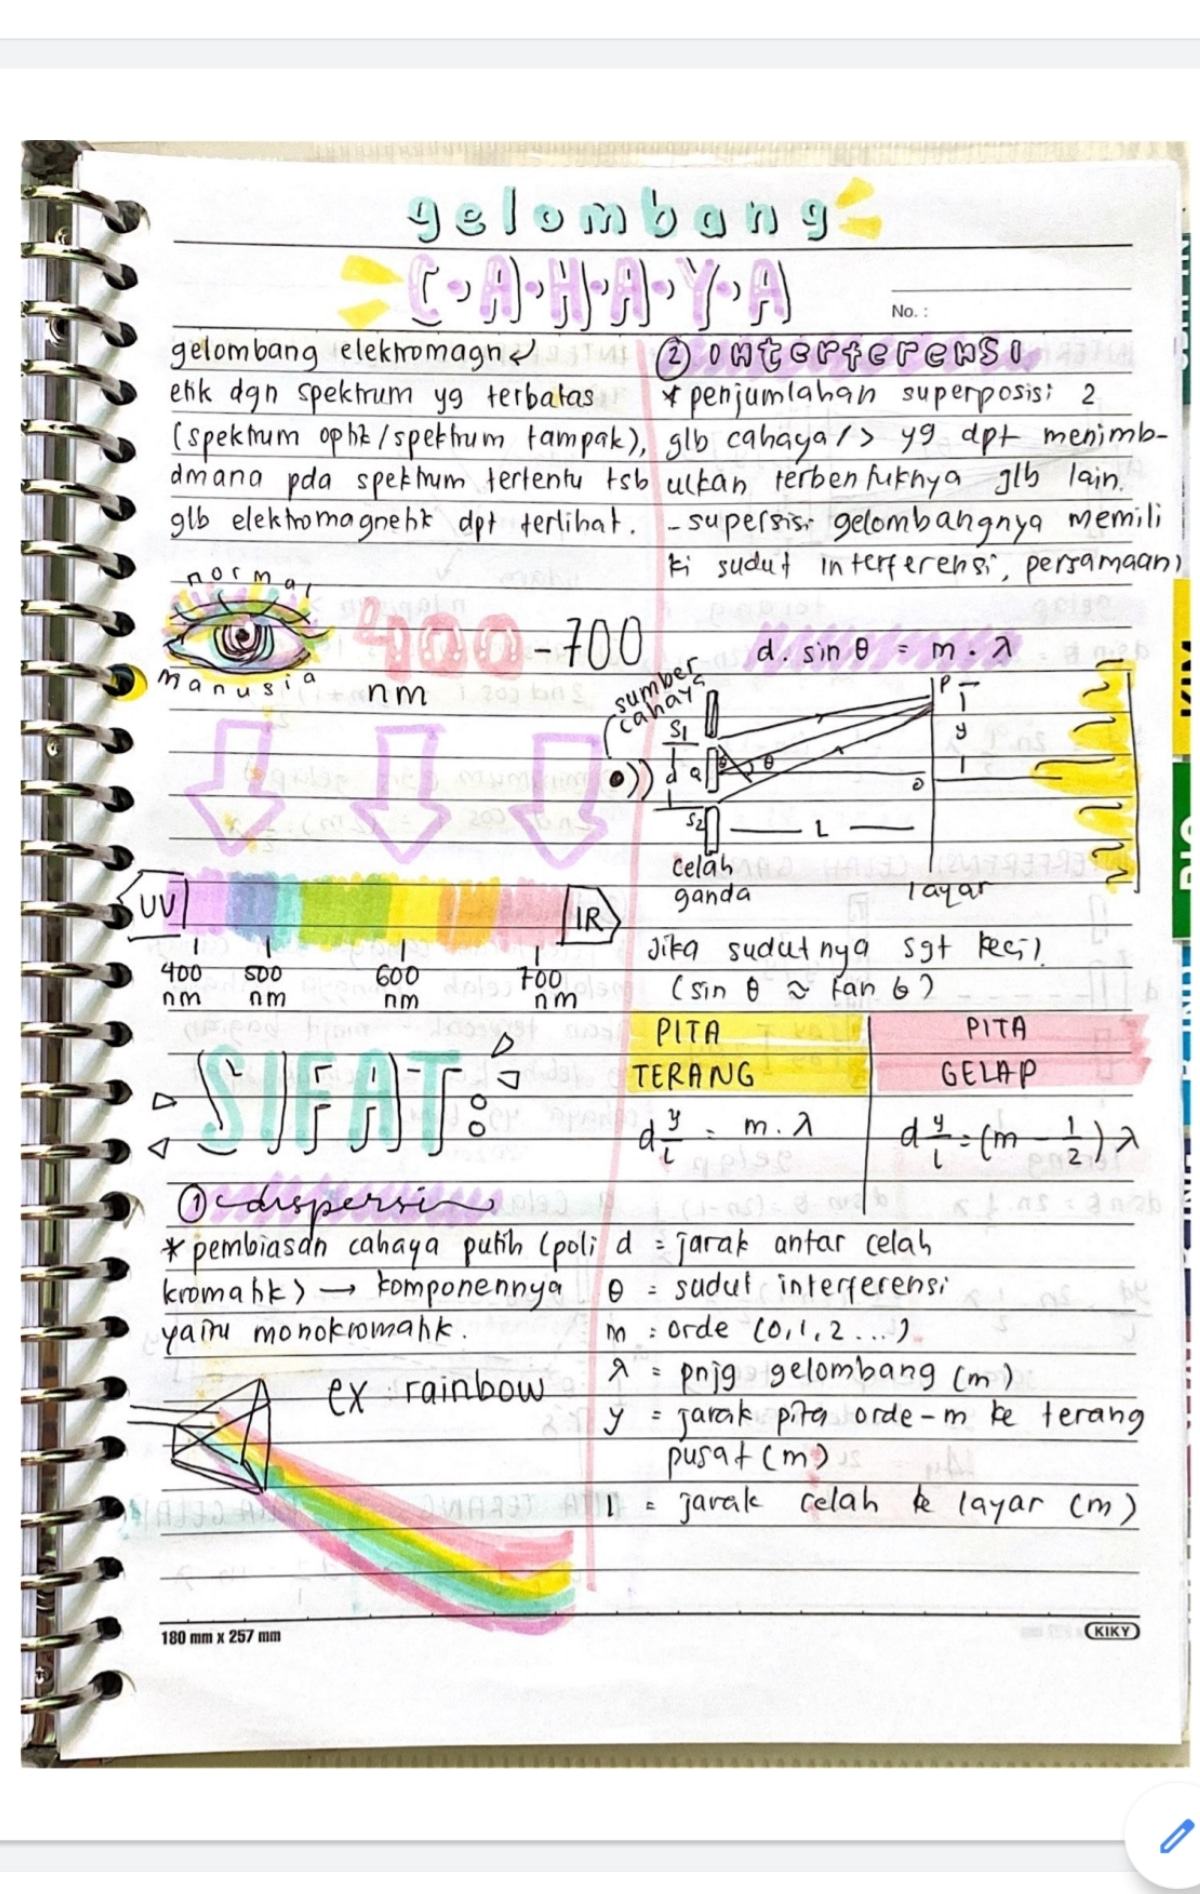 gelombang
C.A.H.A.Y.A
No. :
gelombang elektromagn
etik dgn spektrum yg terbatas
(spektrum optik/spektrum tampak),
dmana pda spektrum tertentu tsb
glb elektromagnetik dpt terlihat.
normal
manusia
400-700
nm
UV
IR
400 500 600 700
nm nm nm nm
SIFAT:
① dispersi
* pembiasan cahaya putih (poli
kromatik) → komponennya
yaitu monokromatik.
ex : rainbow
② interferensi
* penjumlahan superposisi 2
glb cahaya /> yg dpt menimb-
ulkan terbentuknya glb lain.
- supersisi gelombangnya memili
ki sudut interferensi, persamaan,
d. sin θ = m . λ
sumber
cahaya
S1
d a
θ θ
S2
P
y
0
L
celah
ganda
layar
Jika sudutnya sgt kecil
(sin θ ≈ tan θ)
PITA
TERANG
PITA
GELAP
d y/l = m . λ
d y/l = (m - 1/2) λ
d = jarak antar celah
θ = sudut interferensi
m = orde (0,1,2...)
λ = pnjg gelombang (m)
y = jarak pita orde-m ke terang
pusat (m)
l = jarak celah ke layar (m)
180 mm x 257 mm
KIKY